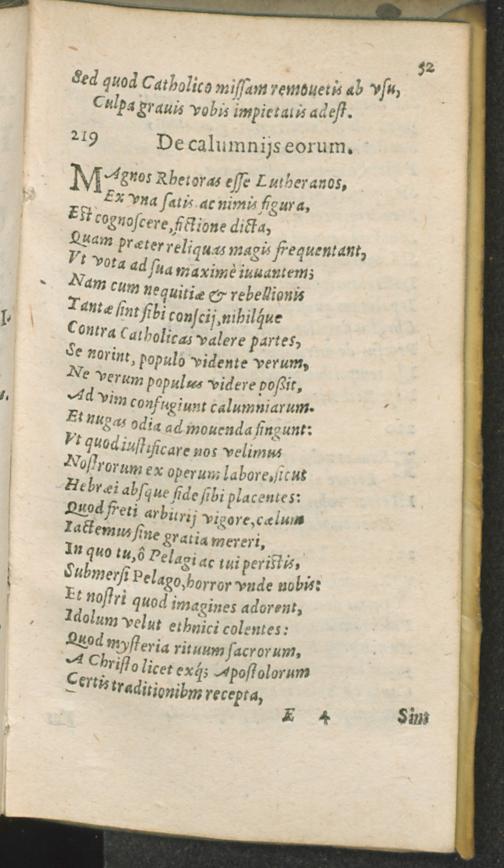 52
Sed quod Catholico missam remouetis ab vsu,
Culpa grauis vobis impietatis adest.
219 De calumnijs eorum.
MAgnos Rhetoras esse Lutheranos,
Ex vna satis ac nimis figura,
Est cognoscere, fictione dicta,
Quam præter reliquas magis frequentant,
Vt vota ad sua maximè iuuantem;
Nam cum nequitiæ & rebellionis
Tantæ sint sibi conscij, nihilq́ue
Contra Catholicas valere partes,
Se norint, populo vidente verum,
Ne verum populus videre poßit,
Ad vim confugiunt calumniarum.
Et nugas odia ad mouenda fingunt:
Vt quod iustificare nos velimus
Nostrorum ex operum labore, sicut
Hebræi absque fide sibi placentes:
Quod freti arbitrij vigore, cælum
Iactemus sine gratia mereri,
In quo tu, ô Pelagi ac tui peristis,
Submersi Pelago, horror vnde nobis:
Et nostri quod imagines adorent,
Idolum velut ethnici colentes:
Quod mysteria rituum sacrorum,
A Christo licet exq́; Apostolorum
Certis traditionibm recepta,
E 4 Sint